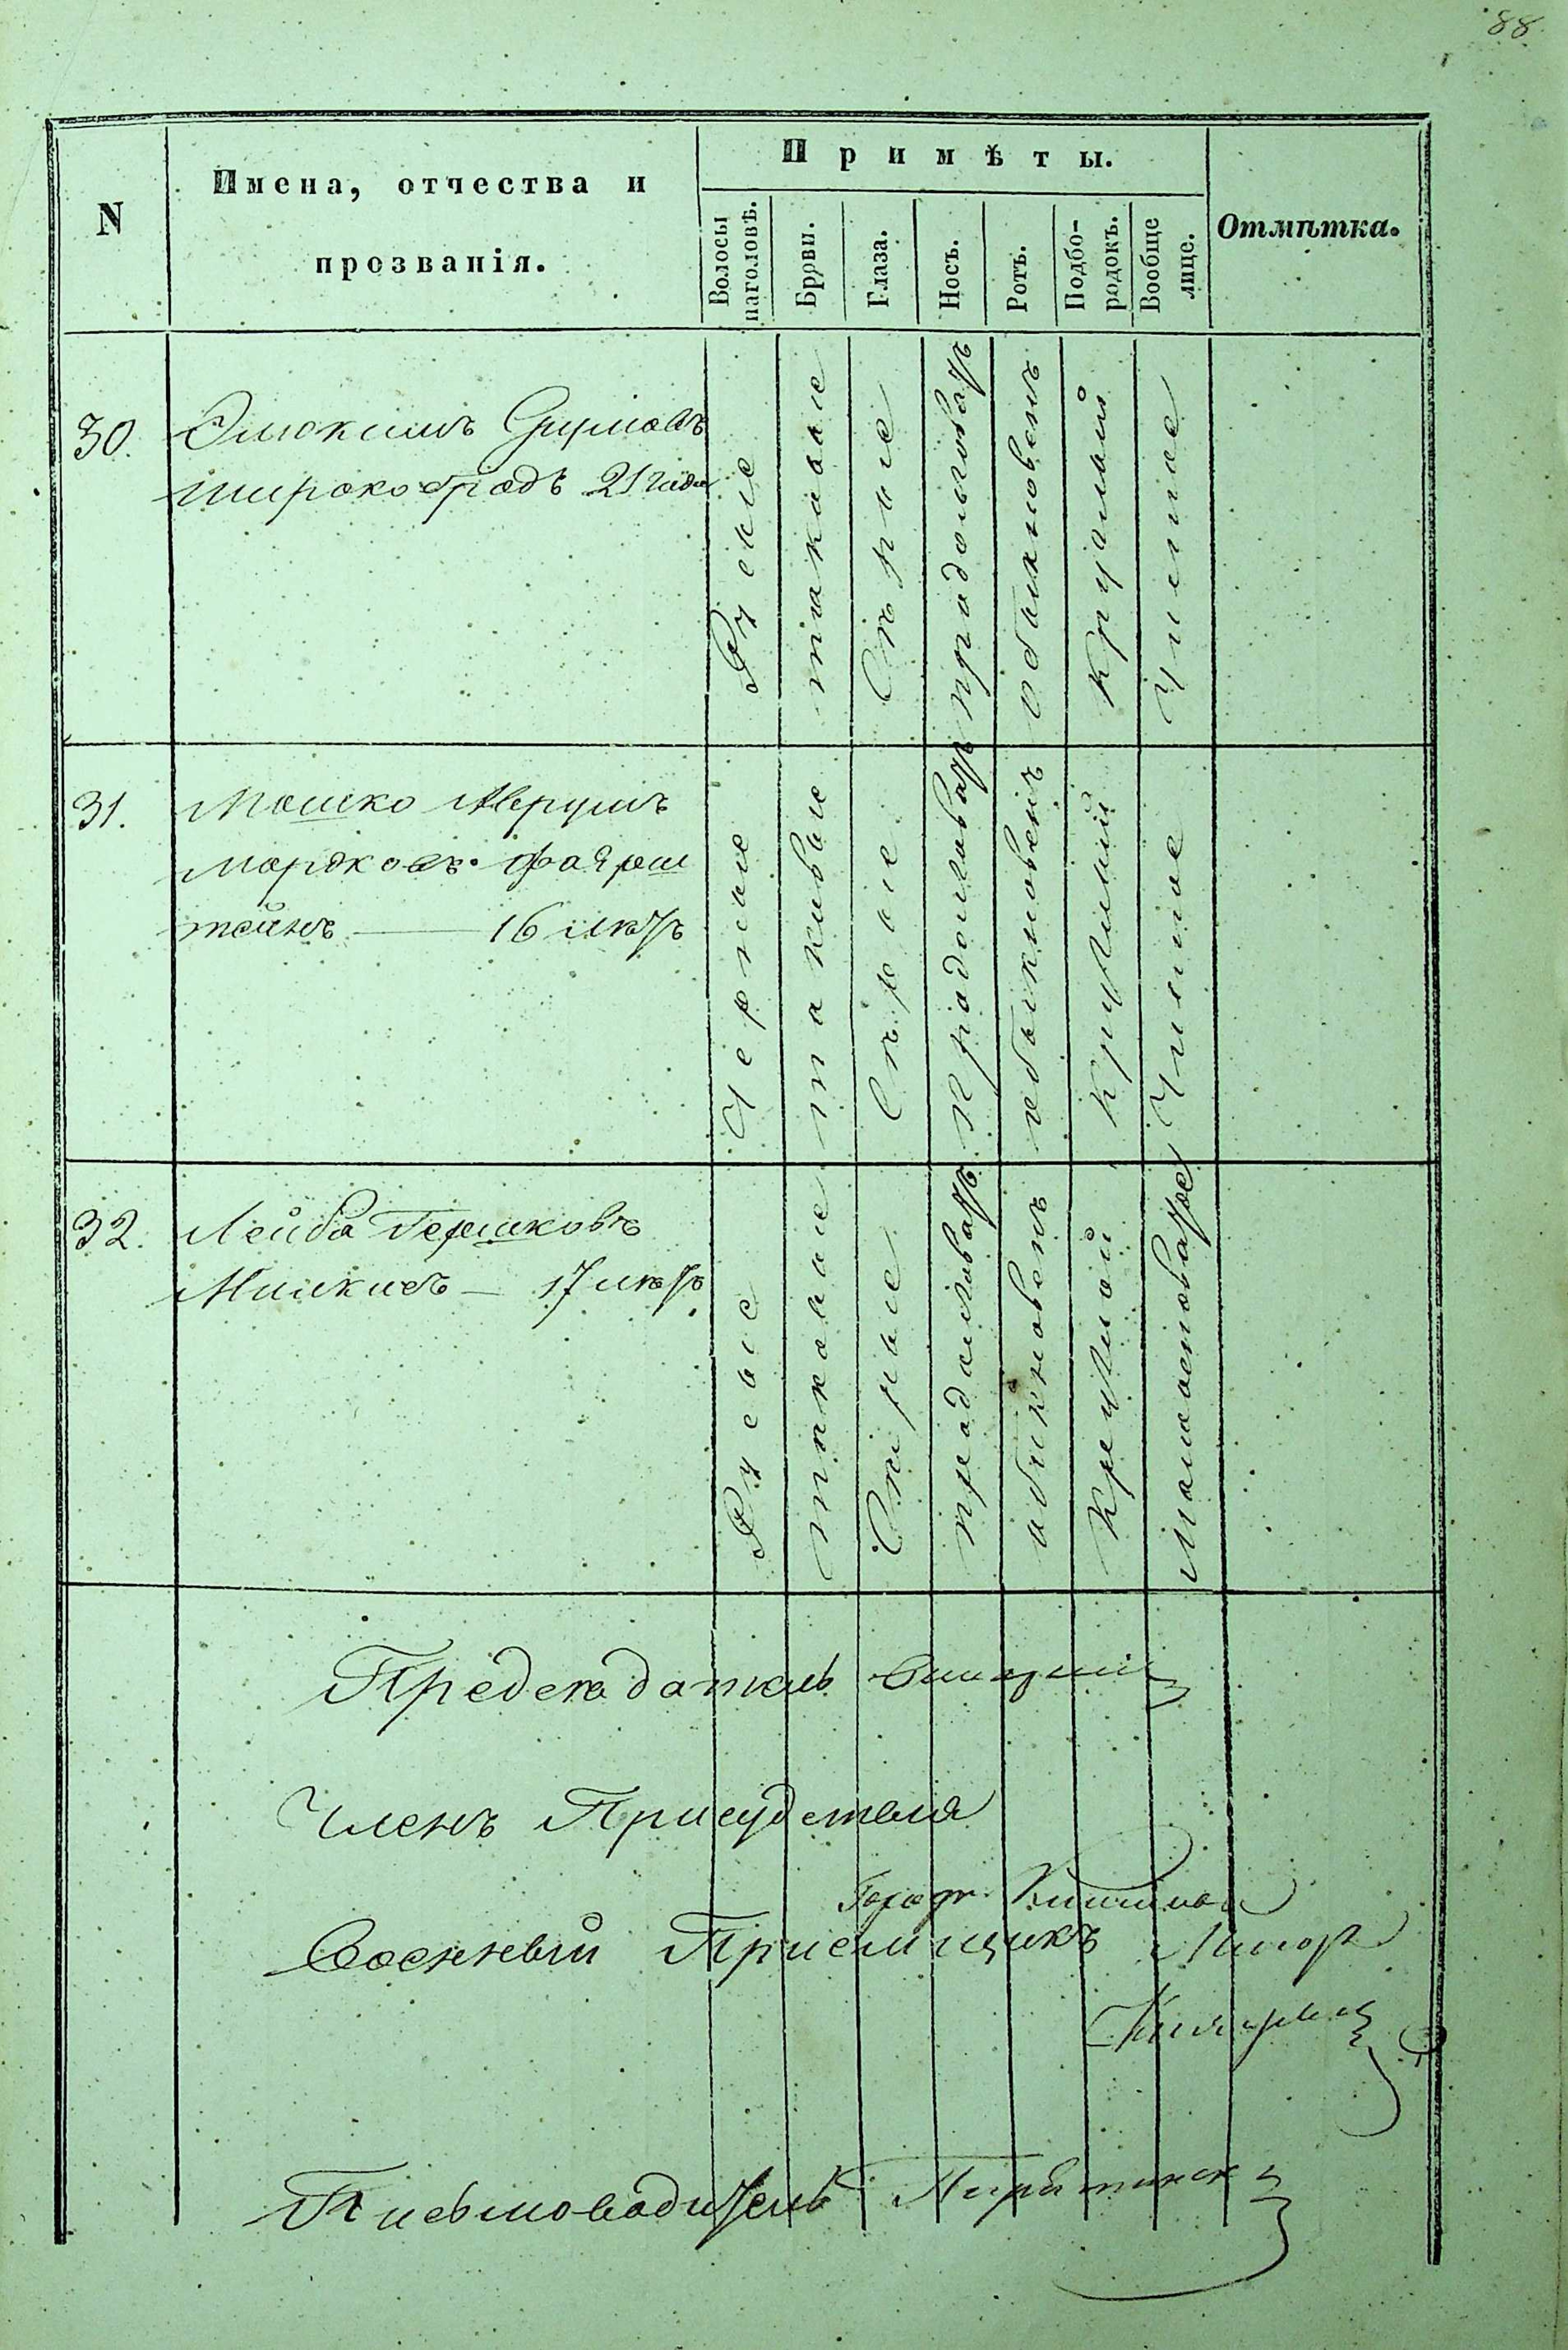 88.
N
Имена, отчества и
прозванія.
Примѣты.
Волосы
наголовѣ.
Брови.
Глаза.
Носъ.
Ротъ.
Подбо-
родокъ.
Вообще
лице.
Отмѣтка.
30.
Элюкимъ
Широкоградъ 21 года
Русые
таковые
Сѣрые
продолговатъ
обыкновенъ
круглый
Чистое
31.
Мошко Аврумъ
Мордковъ Фаерш
тейнъ — 16 лѣтъ
Черные
таковые
Сѣрые
продолговатъ
обыкновенъ
круглый
Чистое
32.
Лейба Гершковъ
17 лѣтъ
Русые
таковые
Сѣрые
продолговатъ
обыкновенъ
круглый
Предсѣдатель
Членъ Присудствія
Военный Пріемщикъ
Письмоводитель